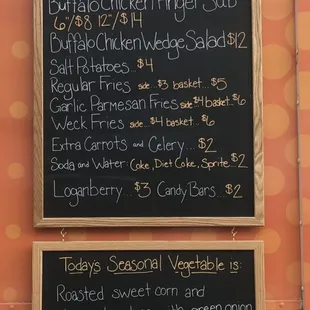 Buffalo Chicken Finger Sub
6"/$8 12"/$14
Buffalo Chicken Wedge Salad $12
Salt Potatoes... $4
Regular Fries side...$3 basket... $5
Garlic Parmesan Fries side $4 basket.. $6
Weck Fries side...$4 basket... $6
Extra Carrots and Celery... $2
Soda and Water: Coke, Diet Coke, Sprite $2
Loganberry... $3 Candy Bars... $2
Today's Seasonal Vegetable is:
Roasted sweet corn and
with green onion